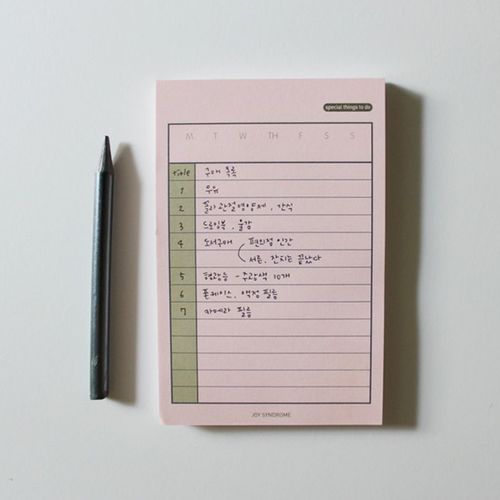 special things to do
M T W TH F S S
Title 구매 목록
1 우유
2 폴리 관절영양제, 간식
3 드로잉북, 물감
4 도서구매 편의점 인간
서른, 잔치는 끝났다
5 형광등 - 주광색 10개
6 폰케이스, 액정 필름
7 카메라 필름
JOY SYNDROME